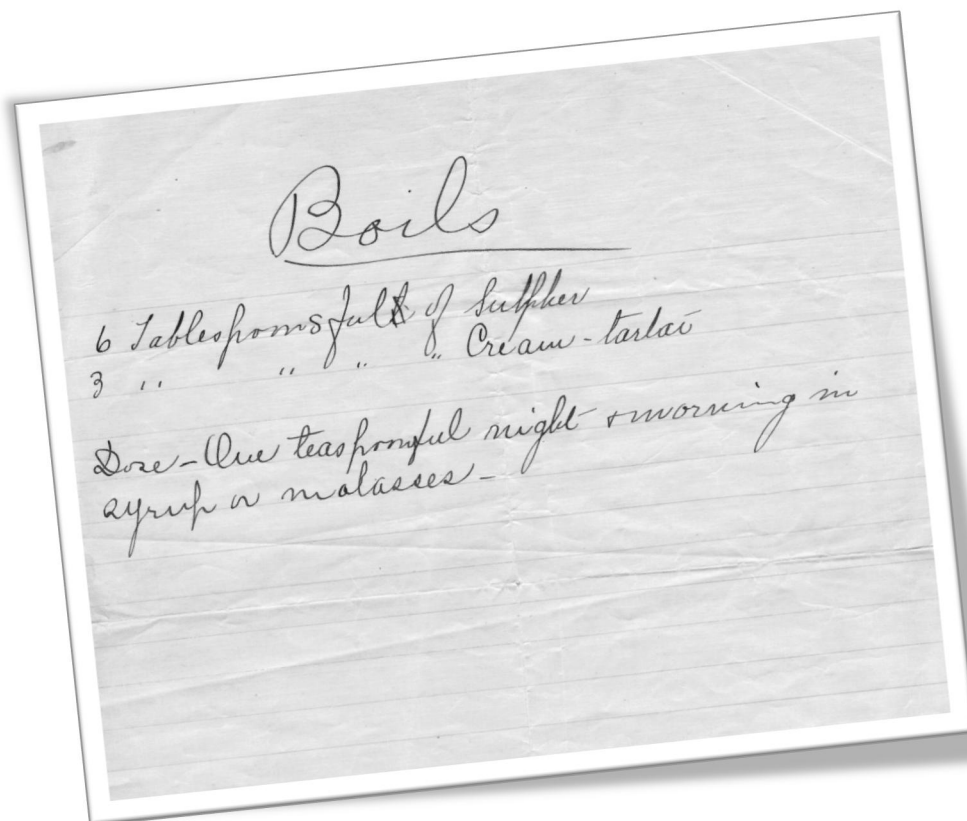 Boils
6 Tablespoonsful of Sulpher
3 " " " " Cream-tartar
Dose - One teaspoonful night + morning in
syrup or molasses -